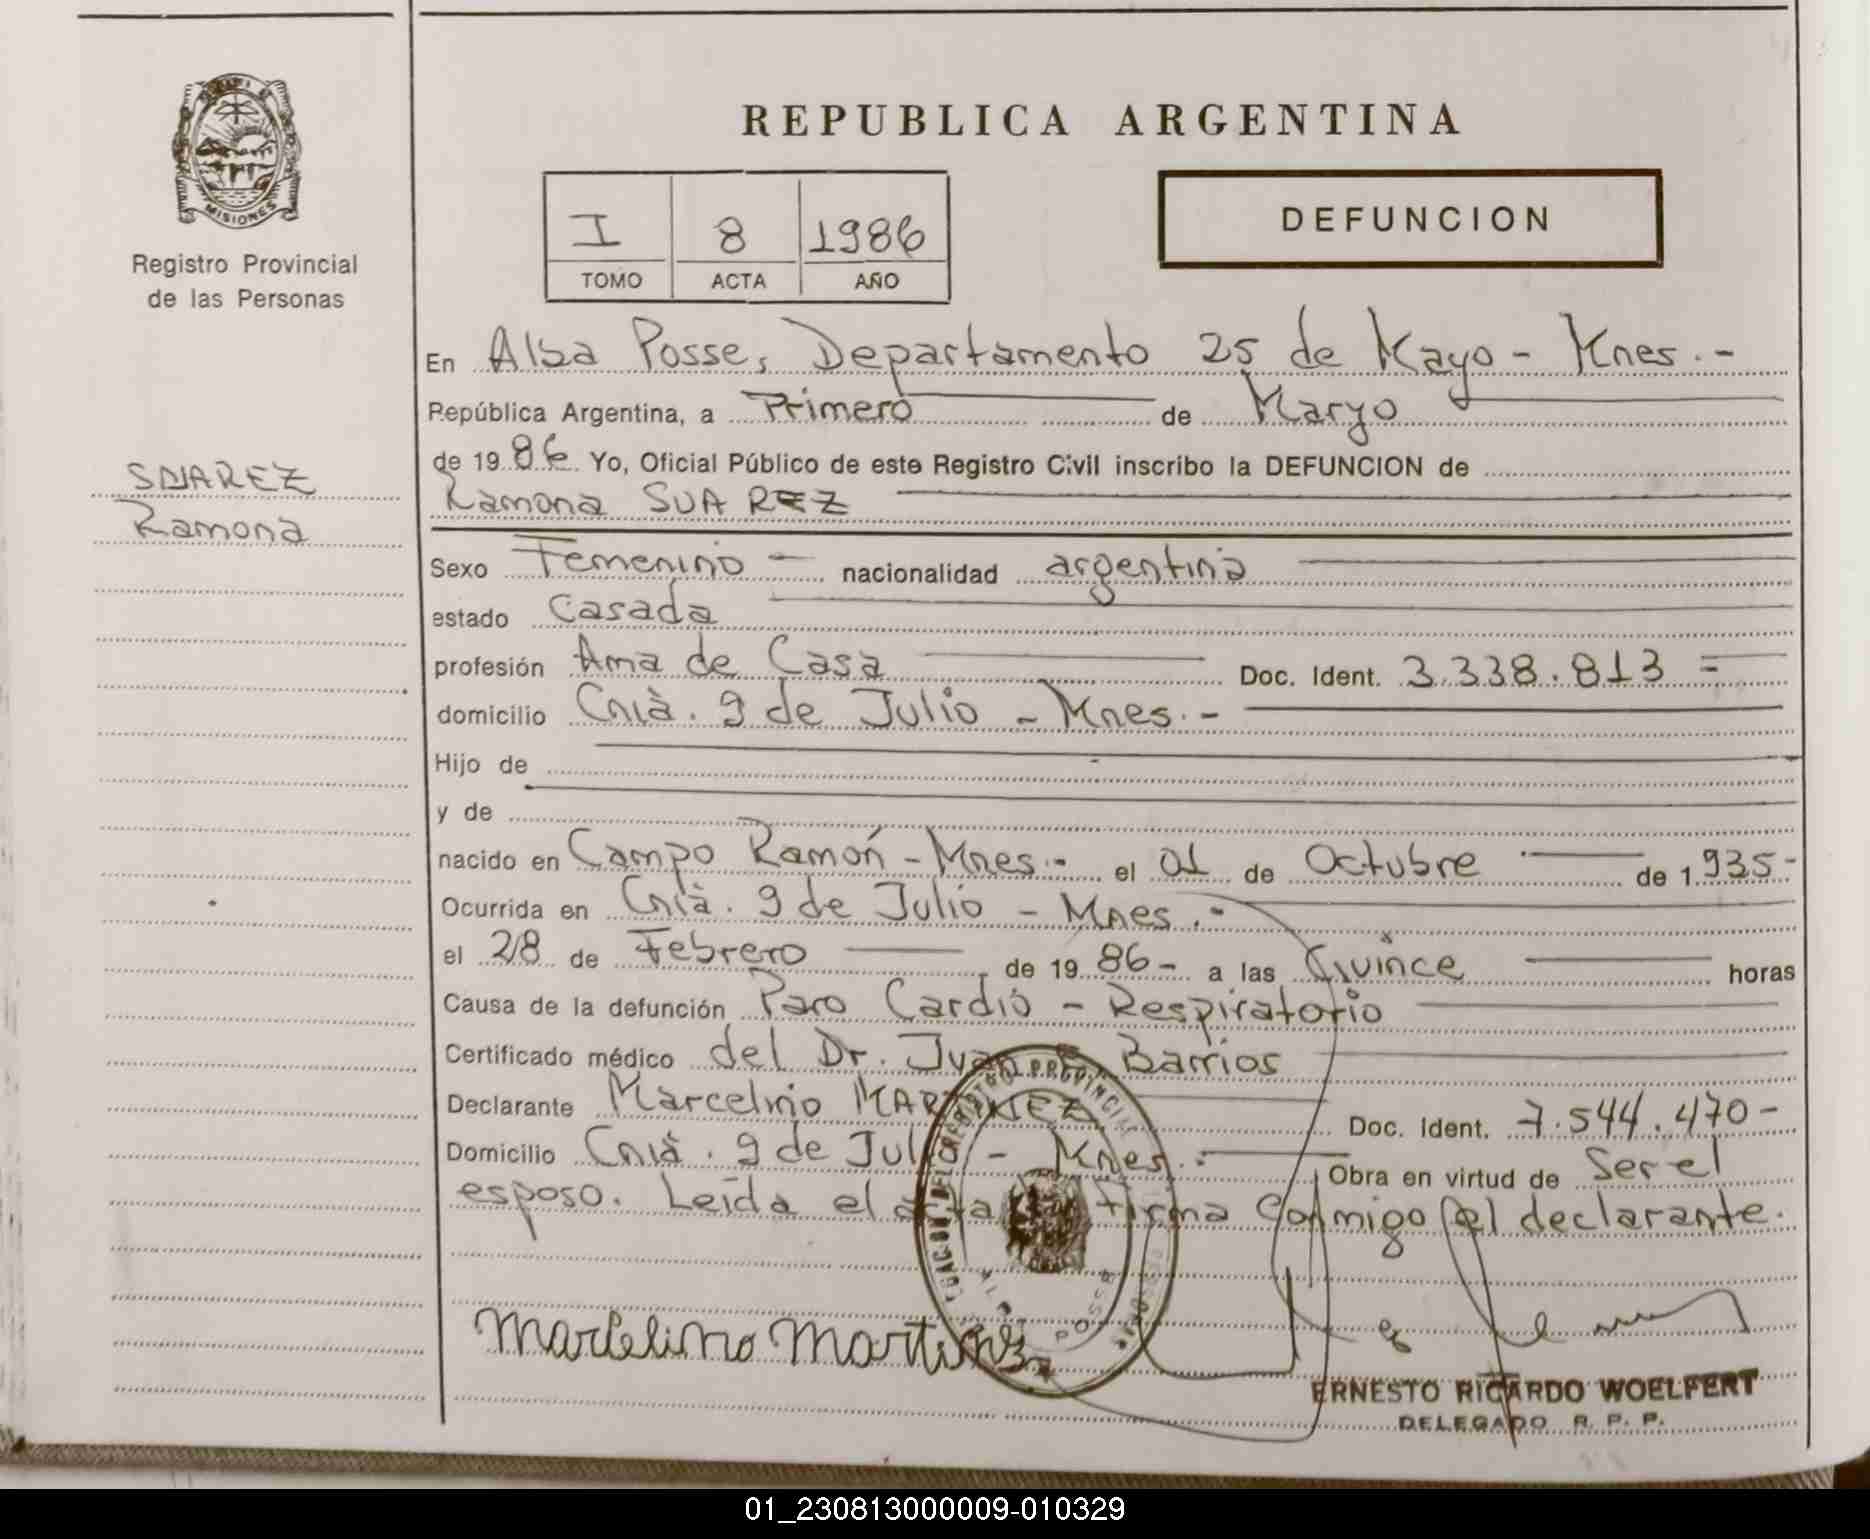 REPUBLICA ARGENTINA
MISIONES
Registro Provincial
de las Personas
I 8 1986
TOMO ACTA AÑO
DEFUNCION
SUAREZ
Ramona
En Alba Posse, Departamento 25 de Mayo - Mnes.-
República Argentina, a Primero de Maryo
de 1986 Yo, Oficial Público de este Registro Civil inscribo la DEFUNCION de
Ramona SUAREZ
Sexo Femenino - nacionalidad argentina
estado Casada
profesión Ama de Casa Doc. Ident. 3.338.813 =
domicilio Cnià. 9 de Julio - Mnes.-
Hijo de
y de
nacido en Campo Ramón - Mnes.- el 01 de Octubre de 1935-
Ocurrida en Cnià. 9 de Julio - Mnes.-
el 28 de Febrero de 1986- a las Quince horas
Causa de la defunción Paro Cardio - Respiratorio
Certificado médico del Dr. Juan Barrios
Declarante Marcelino MARTINEZ Doc. Ident. 7.544.470-
Domicilio Cnià. 9 de Julio - Mnes.- Obra en virtud de Ser el
esposo. Leída el acta firma conmigo el declarante.
REGISTRO PROVINCIAL
ALBA POSSE
Marcelino Martinez
ERNESTO RICARDO WOELFERT
DELEGADO R. P. P.
01_230813000009-010329